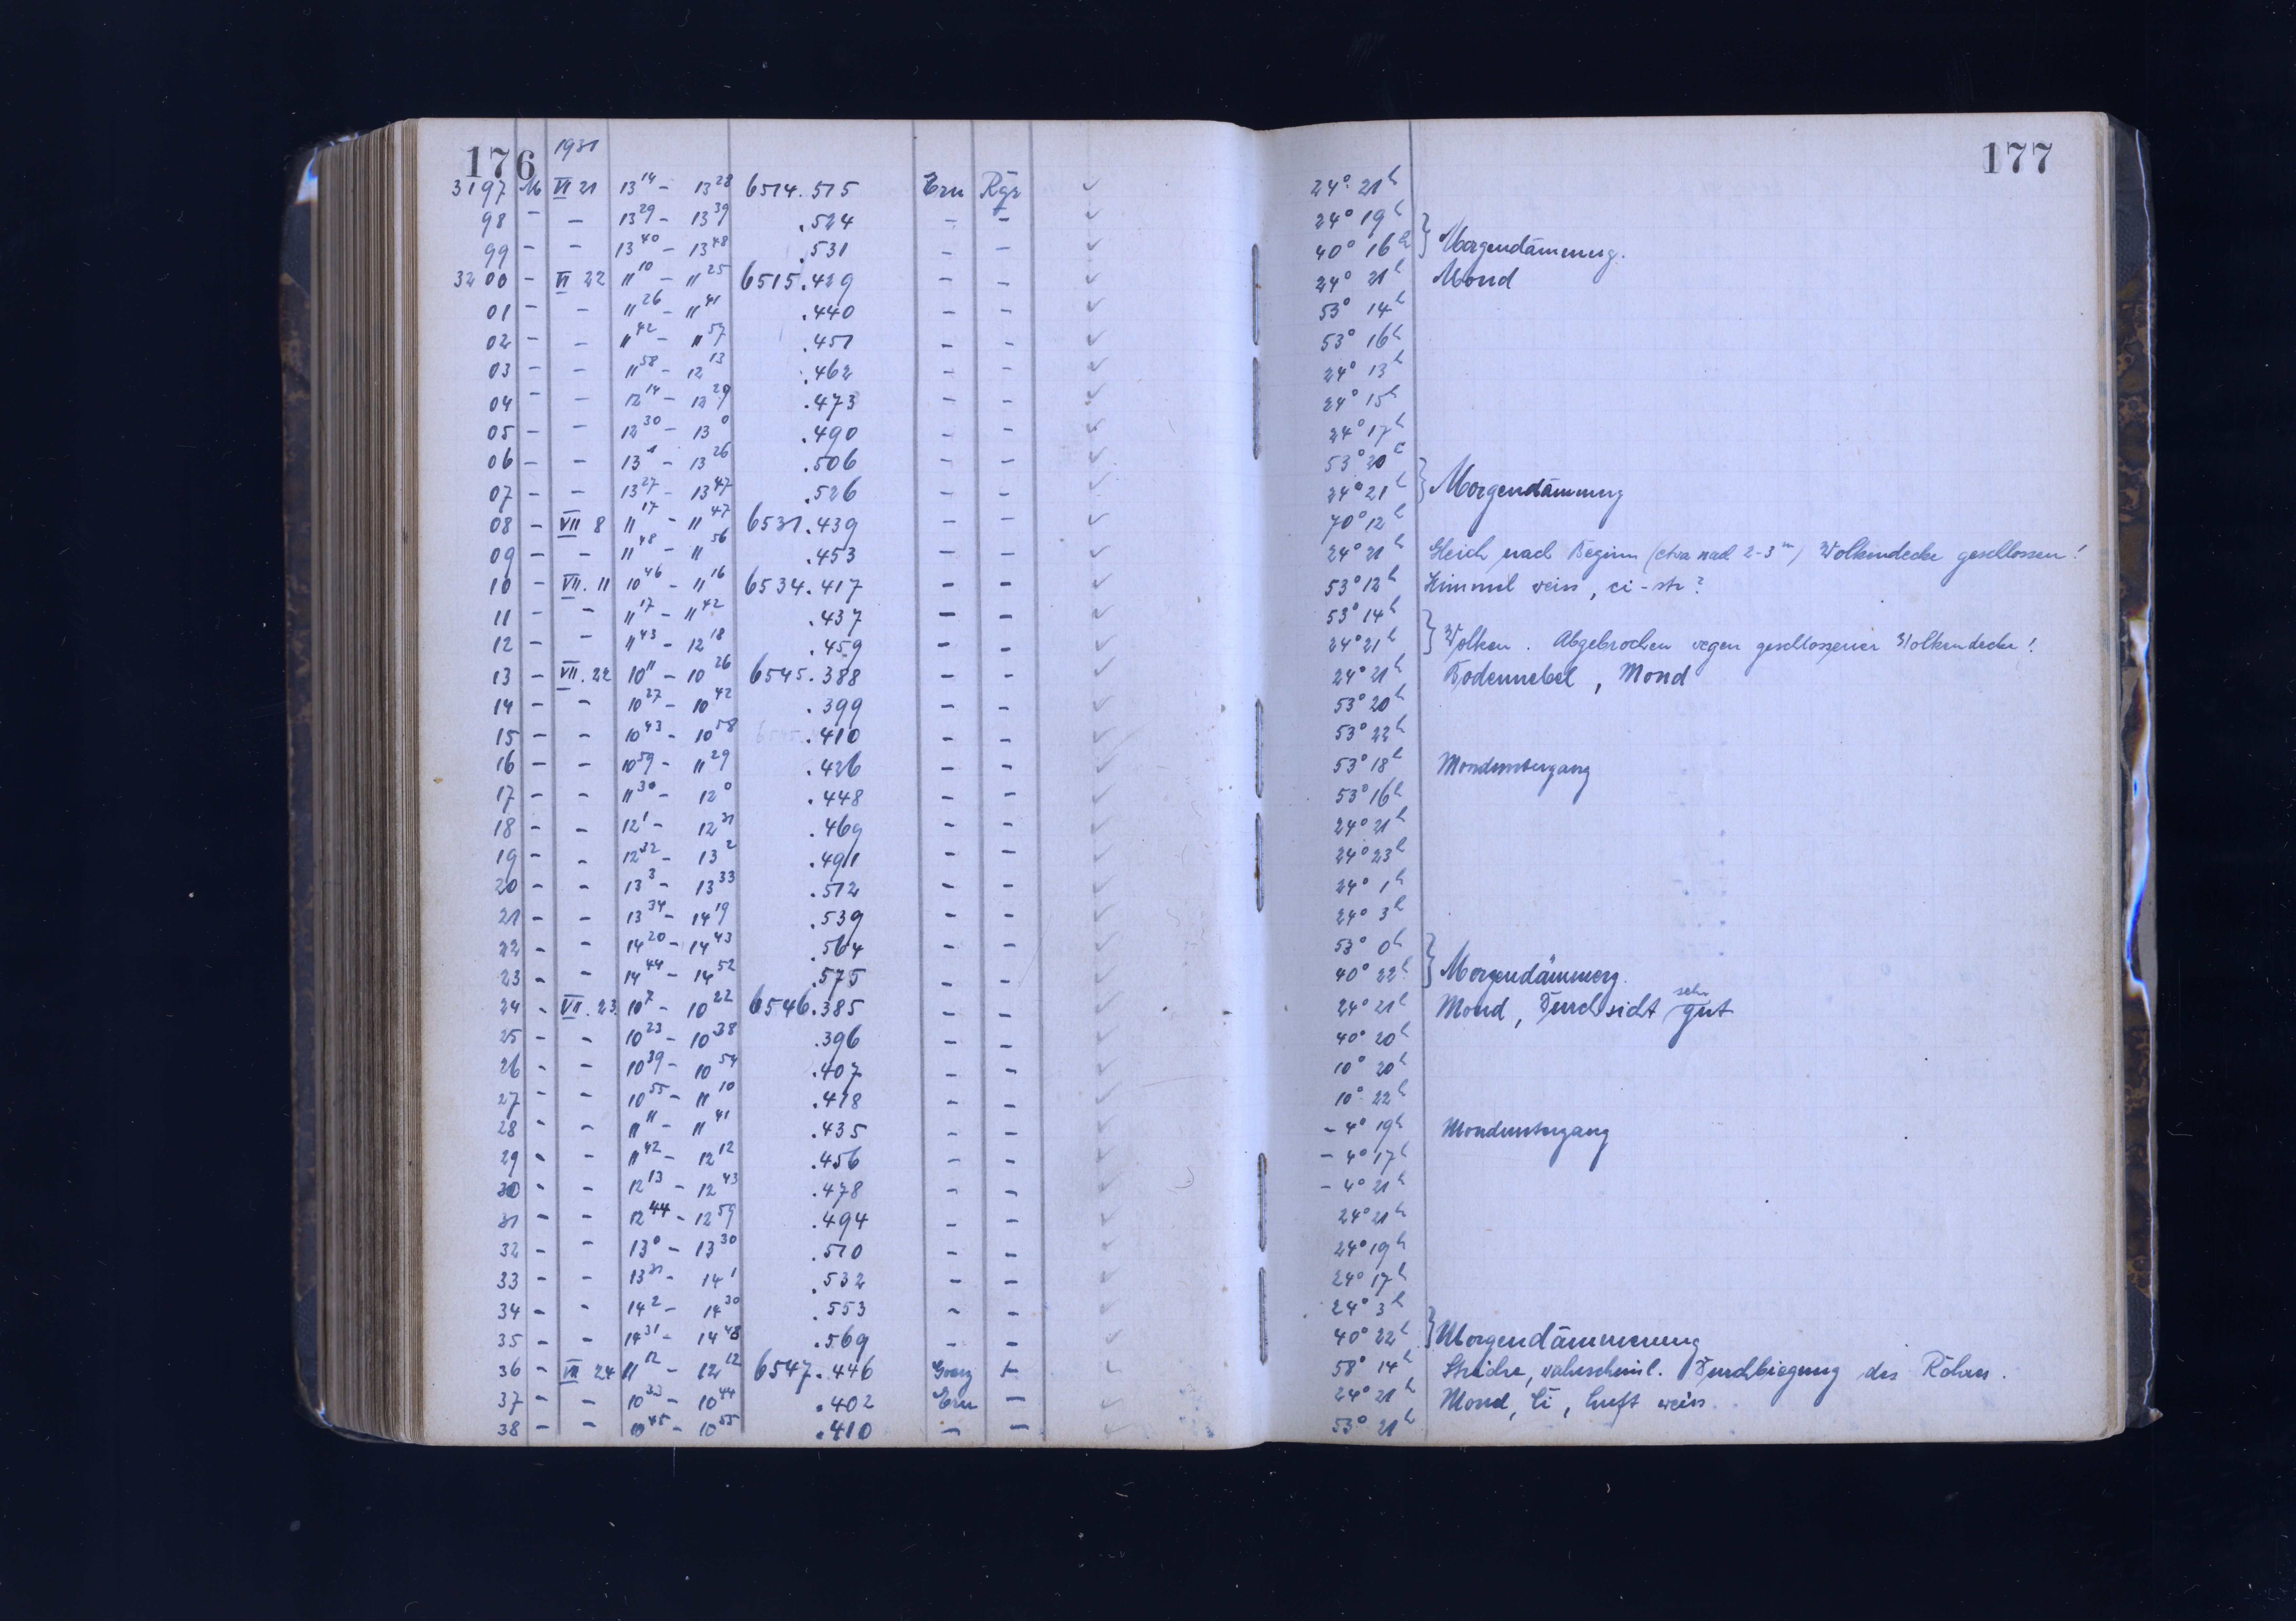 176 1931 177
3197 M VI 21 13 14 - 13 28 6514.515 Ern Rgr 24° 21h
98 - - 13 29 - 13 39 .524 - - 24° 19h
99 - - 13 40 - 13 48 .531 - - 40° 16h } Morgendämmung.
3200 - VI 22 11 10 - 11 25 6515.429 - - 24° 21h Mond
01 - - 11 26 - 11 41 .440 - - 53° 14h
02 - - 11 42 - 11 57 .451 - - 53° 16h
03 - - 11 58 - 12 13 .462 - - 24° 13h
04 - - 12 14 - 12 29 .473 - - 24° 15h
05 - - 12 30 - 13 0 .490 - - 24° 17h
06 - - 13 1 - 13 26 .506 - - 53° 20h
07 - - 13 27 - 13 47 .526 - - 24° 21h } Morgendämmung
08 - VII 8 11 17 - 11 47 6531.439 - - 70° 12h
09 - - 11 48 - 11 56 .453 - - 24° 21h Gleich nach Beginn (etwa nach 2-3 m) Wolkendecke geschlossen!
10 - VII. 11 10 46 - 11 16 6534.417 - - 53° 12h Himmel weiss, ci-str?
11 - - 11 17 - 11 42 .437 - - 53° 14h
12 - - 11 43 - 12 18 .459 - - 24° 21h } Wolken. Abgebrochen wegen geschlossener Wolkendecke!
13 - VII. 22 10 11 - 10 26 6545.388 - - 24° 21h Bodennebel, Mond
14 - - 10 27 - 10 42 .399 - - 53° 20h
15 - - 10 43 - 10 58 .410 - - 53° 22h
16 - - 10 59 - 11 29 .426 - - 53° 18h Monduntergang
17 - - 11 30 - 12 0 .448 - - 53° 16h
18 - - 12 1 - 12 31 .469 - - 24° 21h
19 - - 12 32 - 13 2 .491 - - 24° 23h
20 - - 13 3 - 13 33 .512 - - 24° 1h
21 - - 13 34 - 14 19 .539 - - 24° 3h
22 - - 14 20 - 14 43 .564 - - 53° 0h
23 - - 14 44 - 14 52 .575 - - 40° 22h } Morgendämmerg.
24 - VII. 23 10 7 - 10 22 6546.385 - - 24° 21h Mond, Durchsicht sehr gut
25 - - 10 23 - 10 38 .396 - - 40° 20h
26 - - 10 39 - 10 54 .407 - - 10° 20h
27 - - 10 55 - 11 10 .418 - - 10° 22h
28 - - 11 11 - 11 41 .435 - - - 4° 19h Monduntergang
29 - - 11 42 - 12 12 .456 - - - 4° 17h
30 - - 12 13 - 12 43 .478 - - - 4° 21h
31 - - 12 44 - 12 59 .494 - - 24° 21h
32 - - 13 0 - 13 30 .510 - - 24° 19h
33 - - 13 31 - 14 1 .532 - - 24° 17h
34 - - 14 2 - 14 30 .553 - - 24° 3h
35 - - 14 31 - 14 48 .569 - - 40° 22h } Morgendämmerung
36 - VII 24 11 12 - 12 12 6547.446 + 58° 14h Striche, wahrscheinl. Durchbiegung des Rohres.
37 - - 10 33 - 10 44 .402 Ern - 24° 21h Mond, Ci, Luft weiss.
38 - - 10 45 - 10 55 .410 - - 53° 21h